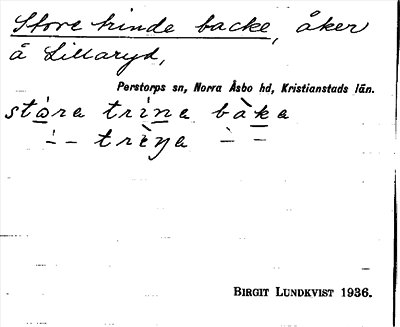 Store hinde backe, åker
å Lillaryd,
Perstorps sn, Norra Åsbo hd, Kristianstads län.
stòra trìna bàka
– – trìŋa – –
BIRGIT LUNDKVIST 1936.